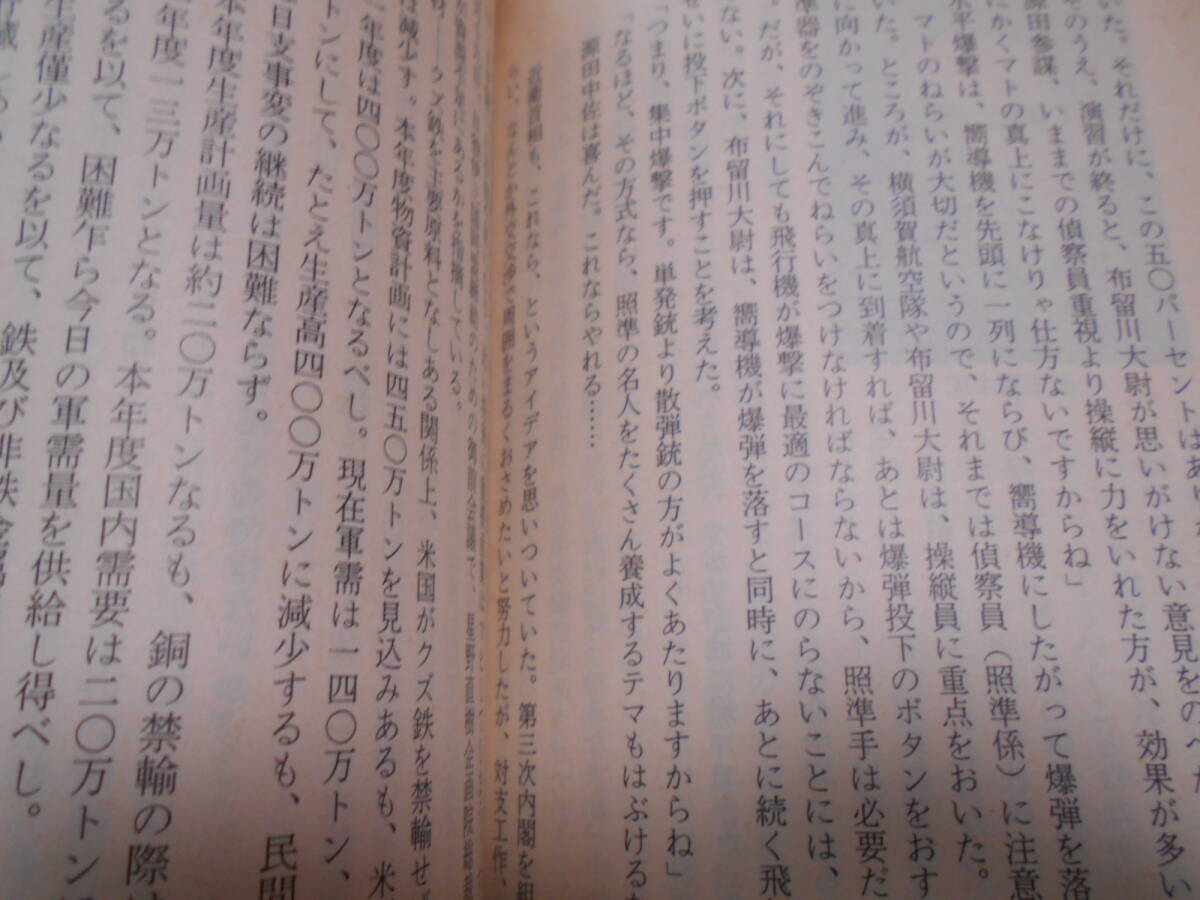 いた。それだけに、この五〇パーセントはあり
そのうえ、演習が終ると、布留川大尉が思いがけない意見をのべた
源田参謀、いままでの偵察員重視より操縦に力をいれた方が、効果が多い
にかくマトの真上にこなけりゃ仕方ないですからね」
水平爆撃は、嚮導機を先頭に一列にならび、嚮導機にしたがって爆弾を落
マトのねらいが大切だというので、それまでは偵察員（照準係）に注意
いた。ところが、横須賀航空隊や布留川大尉は、操縦員に重点をおいた。
に向かって進み、その真上に到着すれば、あとは爆弾投下のボタンをおす
準器をのぞきこんでねらいをつけなければならないから、照準手は必要だ
。だが、それにしても飛行機が爆撃に最適のコースにのらないことには、
ない。次に、布留川大尉は、嚮導機が爆弾を落すと同時に、あとに続く飛
せいに投下ボタンを押すことを考えた。
「つまり、集中爆撃です。単発銃より散弾銃の方がよくあたりますからね」
「なるほど、その方式なら、照準の名人をたくさん養成するテマもはぶける
源田中佐は喜んだ。これならやれる……
近衛首相も、これなら、というアイデアを思いついていた。第三次内閣を組
なんとか外交交渉で時間をまるくおさめたいと努力したが、対支工作、
を指摘している。
クズ鉄を主要原料となしある関係上、米国がクズ鉄を禁輸せ
は減少す。本年度物資計画には四五〇万トンを見込みあるも、米
年度は四〇〇万トンとなるべし。現在軍需は一四〇万トン、
トンにして、たとえ生産高四〇〇万トンに減少するも、民間
日支事変の継続は困難ならず。
本年度生産計画量は約二〇万トンなるも、銅の禁輸の際は
年度一三万トンとなる。本年度国内需要は二〇万トン
るを以て、困難乍ら今日の軍需量を供給し得べし。
生産僅少なるを以て、鉄及び非鉄金属